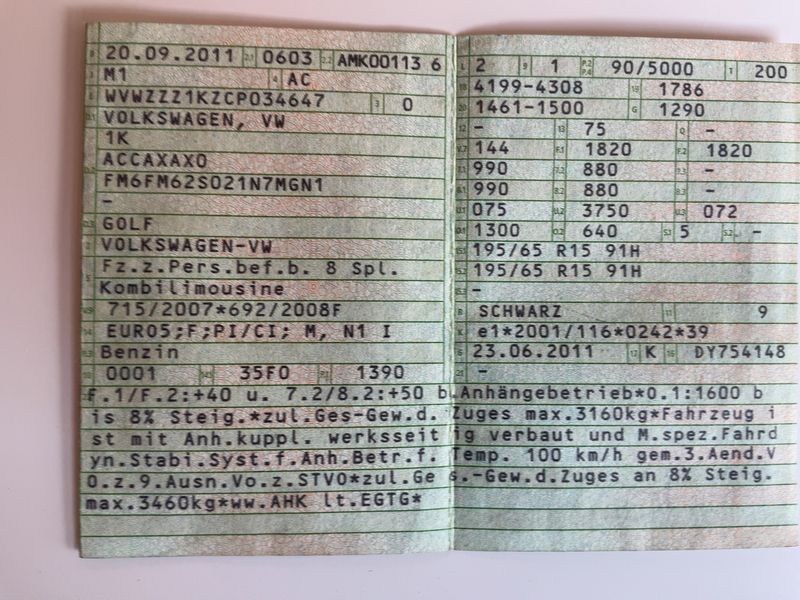 20.09.2011 0603 AMK00113 6
M1 AC
WVWZZZ1KZCP034647 0
VOLKSWAGEN, VW
1K
ACCAXAX0
FM6FM62S021N7MGN1
–
GOLF
VOLKSWAGEN-VW
Fz.z.Pers.bef.b. 8 Spl.
Kombilimousine
715/2007*692/2008F
EURO5;F;PI/CI; M, N1 I
Benzin
0001 35F0 1390
2 1 90/5000 200
4199-4308 1786
1461-1500 1290
– 75 –
144 1820 1820
990 880 –
990 880 –
075 3750 072
1300 640 5 –
195/65 R15 91H
195/65 R15 91H
–
SCHWARZ 9
e1*2001/116*0242*39
23.06.2011 K DY754148
–
F.1/F.2:+40 u. 7.2/8.2:+50 b.Anhängebetrieb*0.1:1600 b
is 8% Steig.*zul.Ges-Gew.d. Zuges max.3160kg*Fahrzeug i
st mit Anh.kuppl. werksseit ig verbaut und M.spez.Fahrd
yn.Stabi.Syst.f.Anh.Betr.f. Temp. 100 km/h gem.3.Aend.V
O.z.9.Ausn.Vo.z.STVO*zul.Ge s.-Gew.d.Zuges an 8% Steig.
max.3460kg*ww.AHK lt.EGTG*